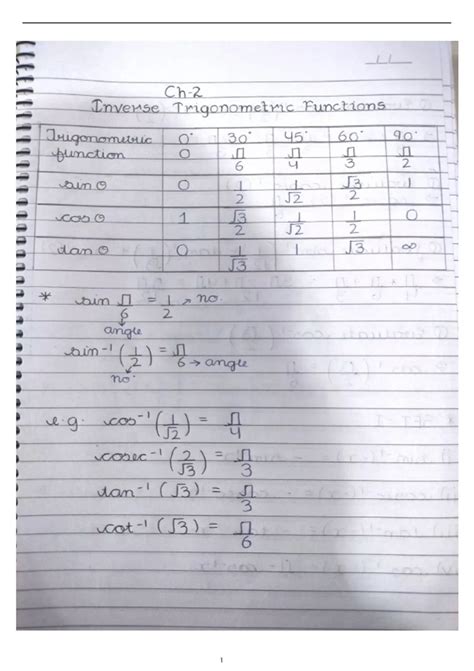 Ch-2
Inverse Trigonometric Functions
Trigonometric function | 0° 0 | 30° π/6 | 45° π/4 | 60° π/3 | 90° π/2
sin θ | 0 | 1/2 | 1/√2 | √3/2 | 1
cos θ | 1 | √3/2 | 1/√2 | 1/2 | 0
tan θ | 0 | 1/√3 | 1 | √3 | ∞
* sin π/6 = 1/2 → no.
angle
sin⁻¹ (1/2) = π/6 → angle
no.
e.g. cos⁻¹ (1/√2) = π/4
cosec⁻¹ (2/√3) = π/3
tan⁻¹ (√3) = π/3
cot⁻¹ (√3) = π/6
1